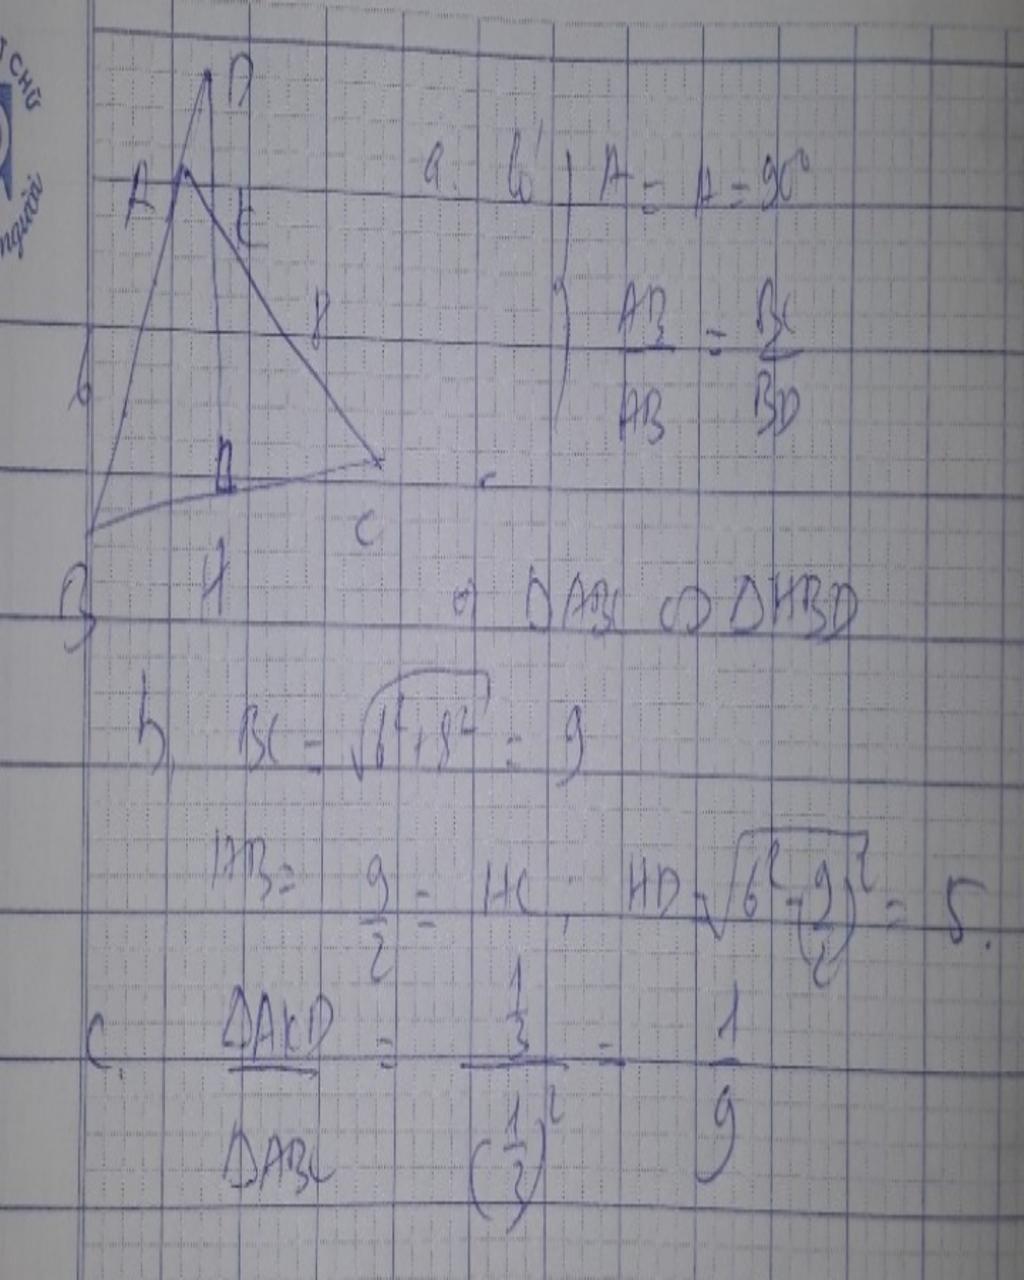 CHỮ
người
D
A
E
8
6
B
H
C
a. A = A = 90°
AB/AB = BC/BD
=> ΔABC ∽ ΔHBD
b, BC = √(6² + 8²) = 9
HB = 9/2 = HC ; HD = √(6² - (9/2)²) = 5.
c. ΔAKD/ΔABC = (1/3)/(1/3)² = 1/9